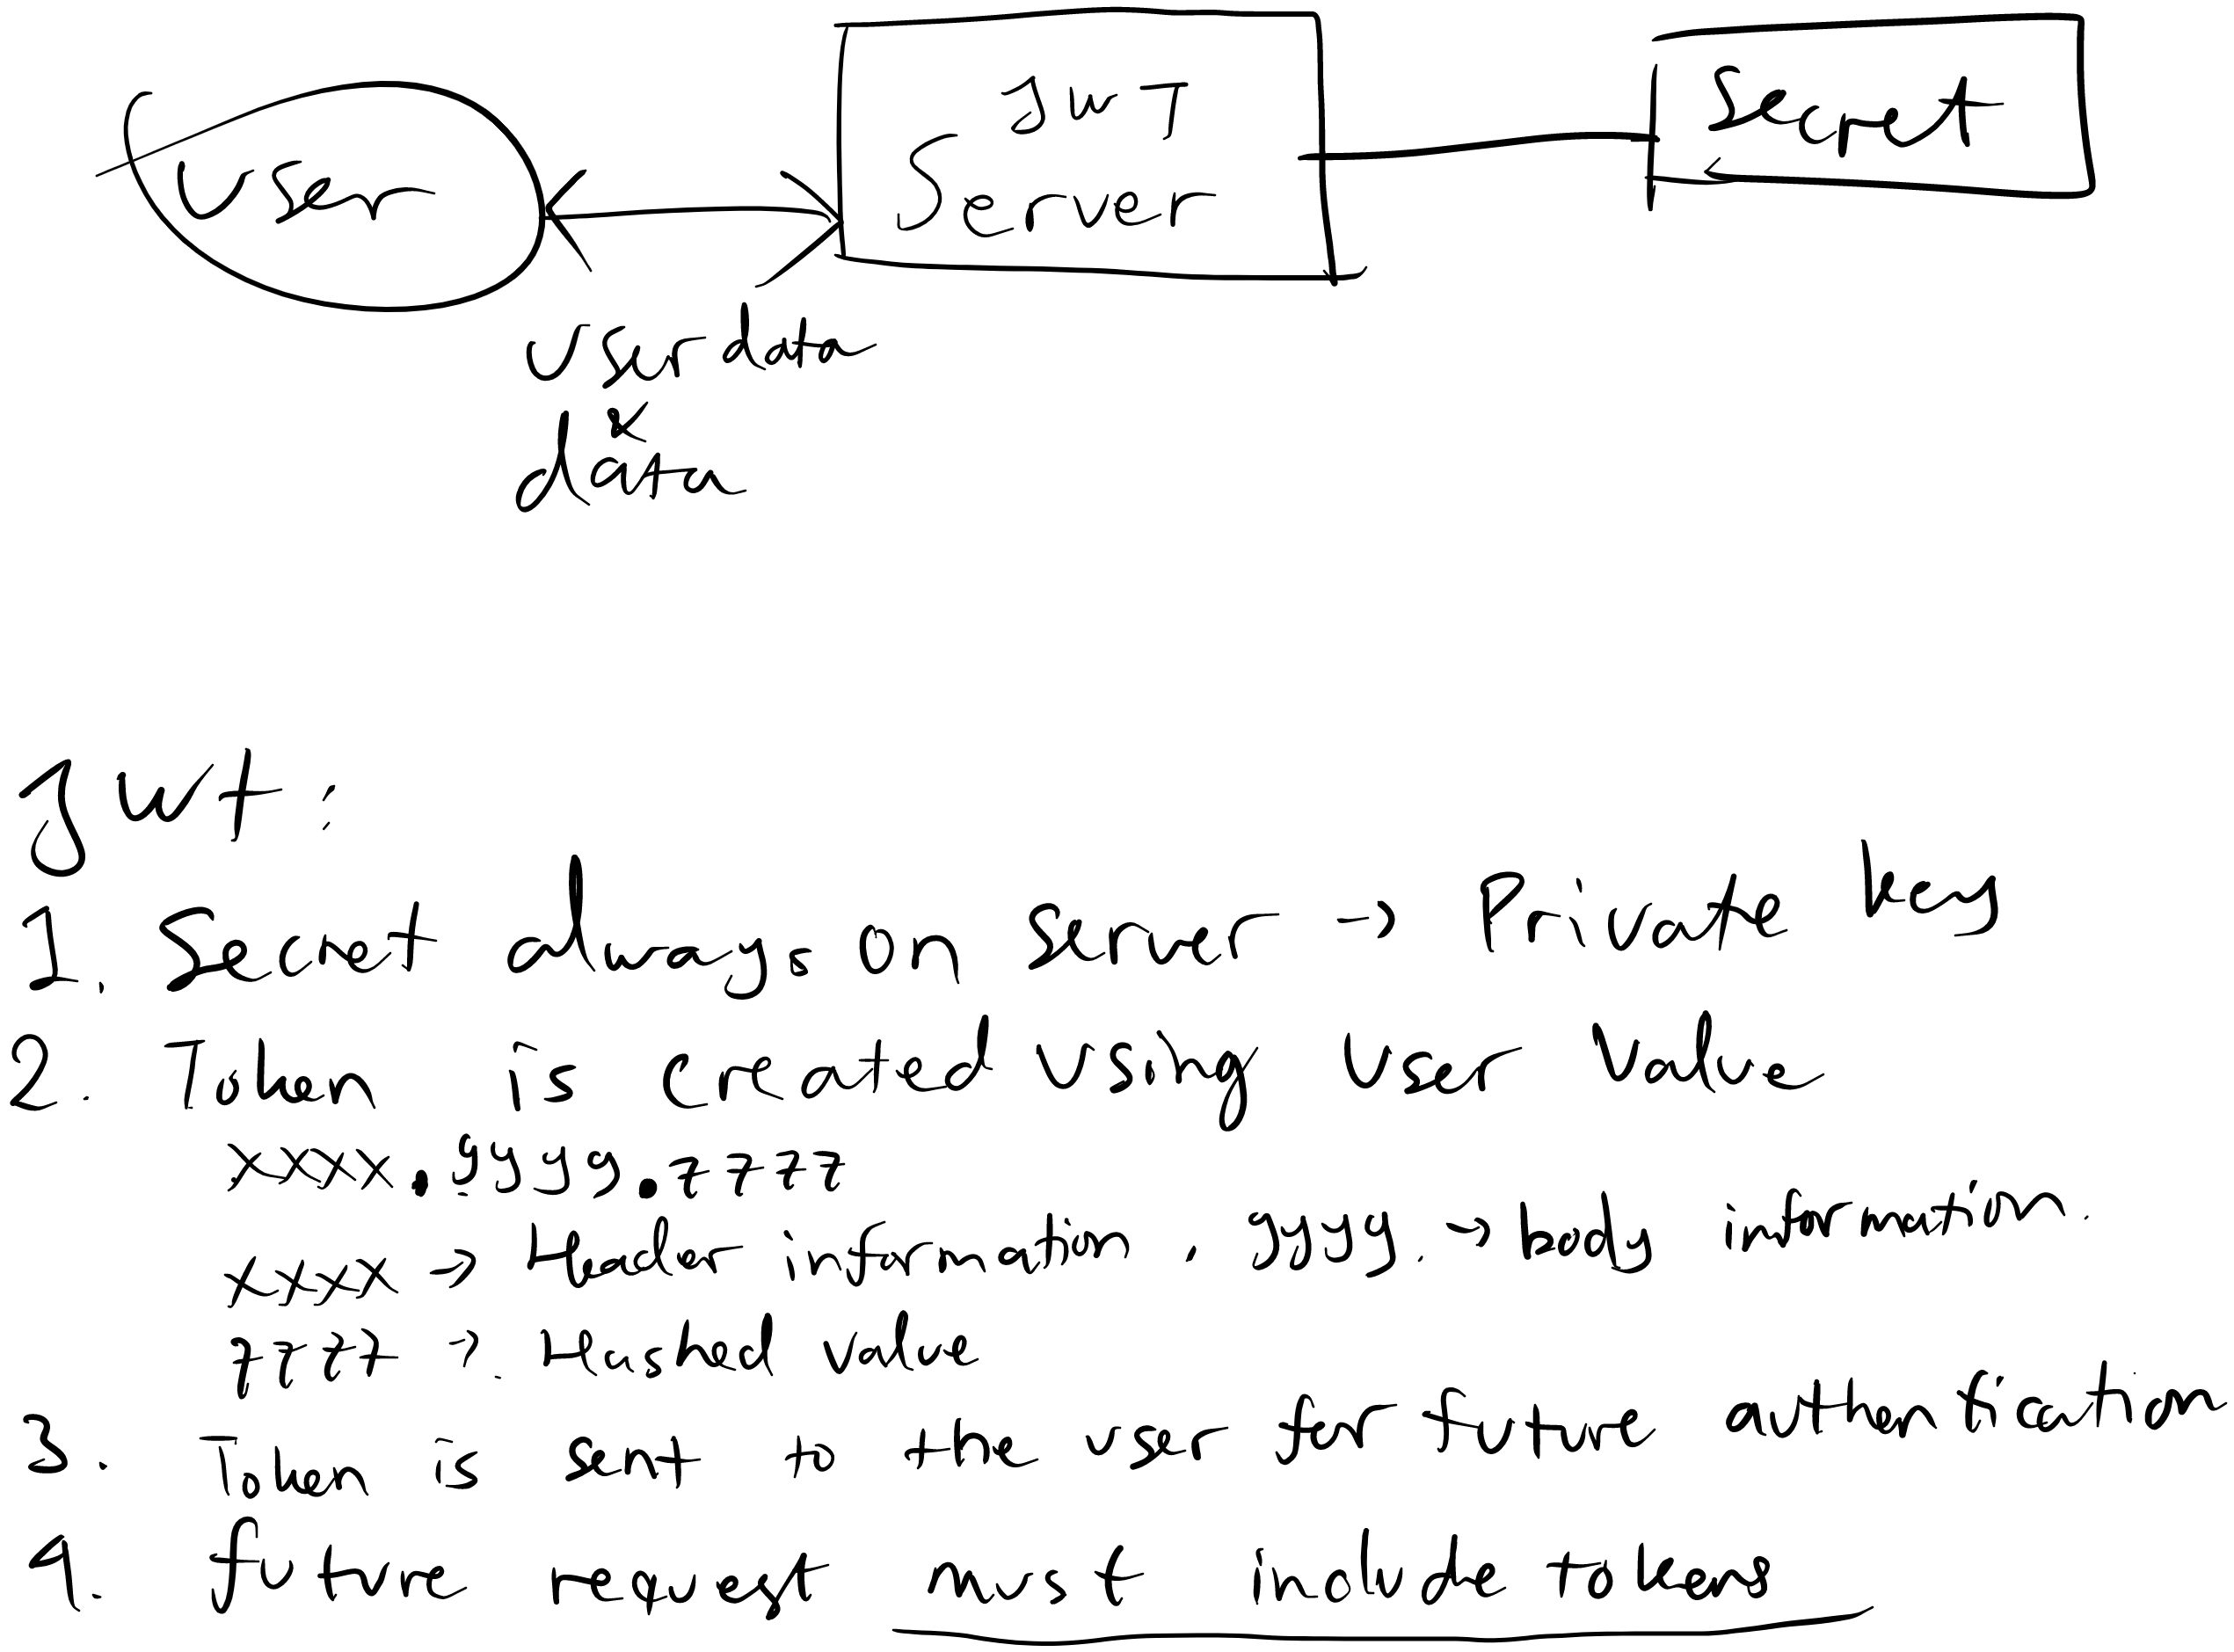 User
JWT
Server
Secret
User data
&
data
JWT:
1. Secret always on server → Private key
2. Token is created using user value
xxxx.yyyy.zzzz
xxxx → Header information. yyyy. → body information.
zzzz →. Hashed value
3. Token is sent to the user for future authentication
4. future request must include tokens